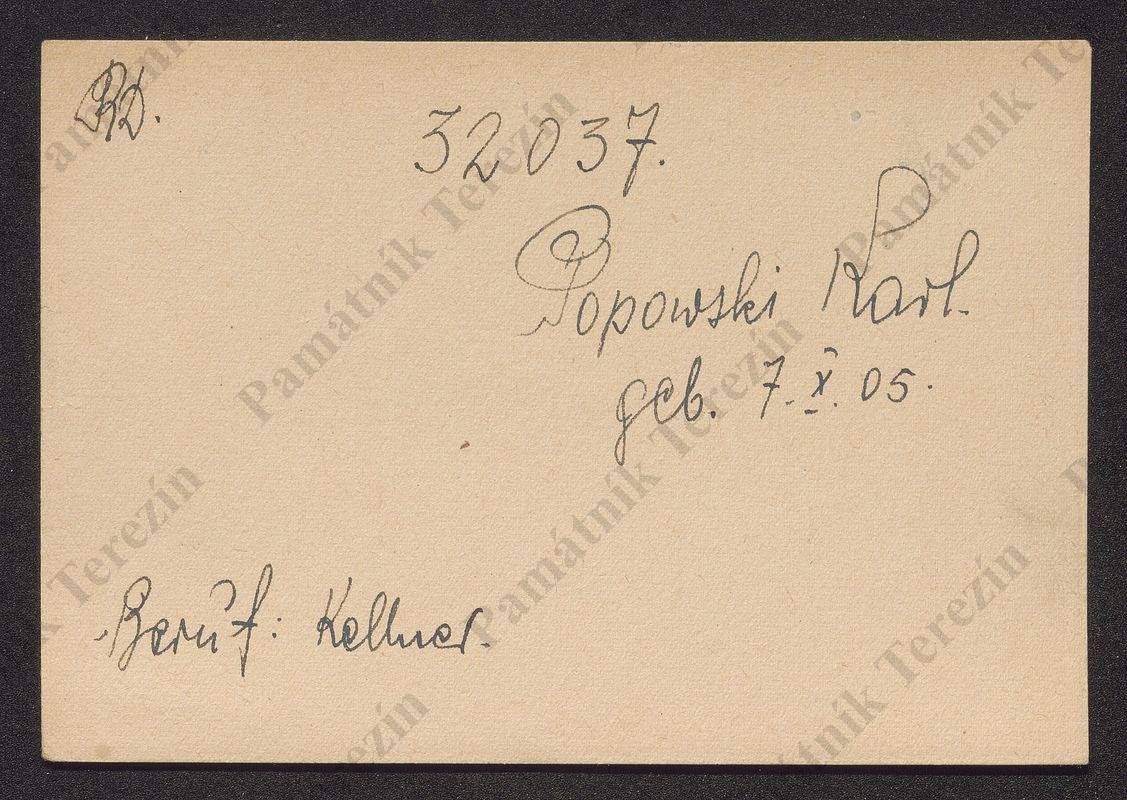 RD.
32037.
Popowski Karl.
geb. 7. X. 05.
Beruf: Kellner.
Památník Terezín
Památník Terezín
Památník Terezín
Památník Terezín